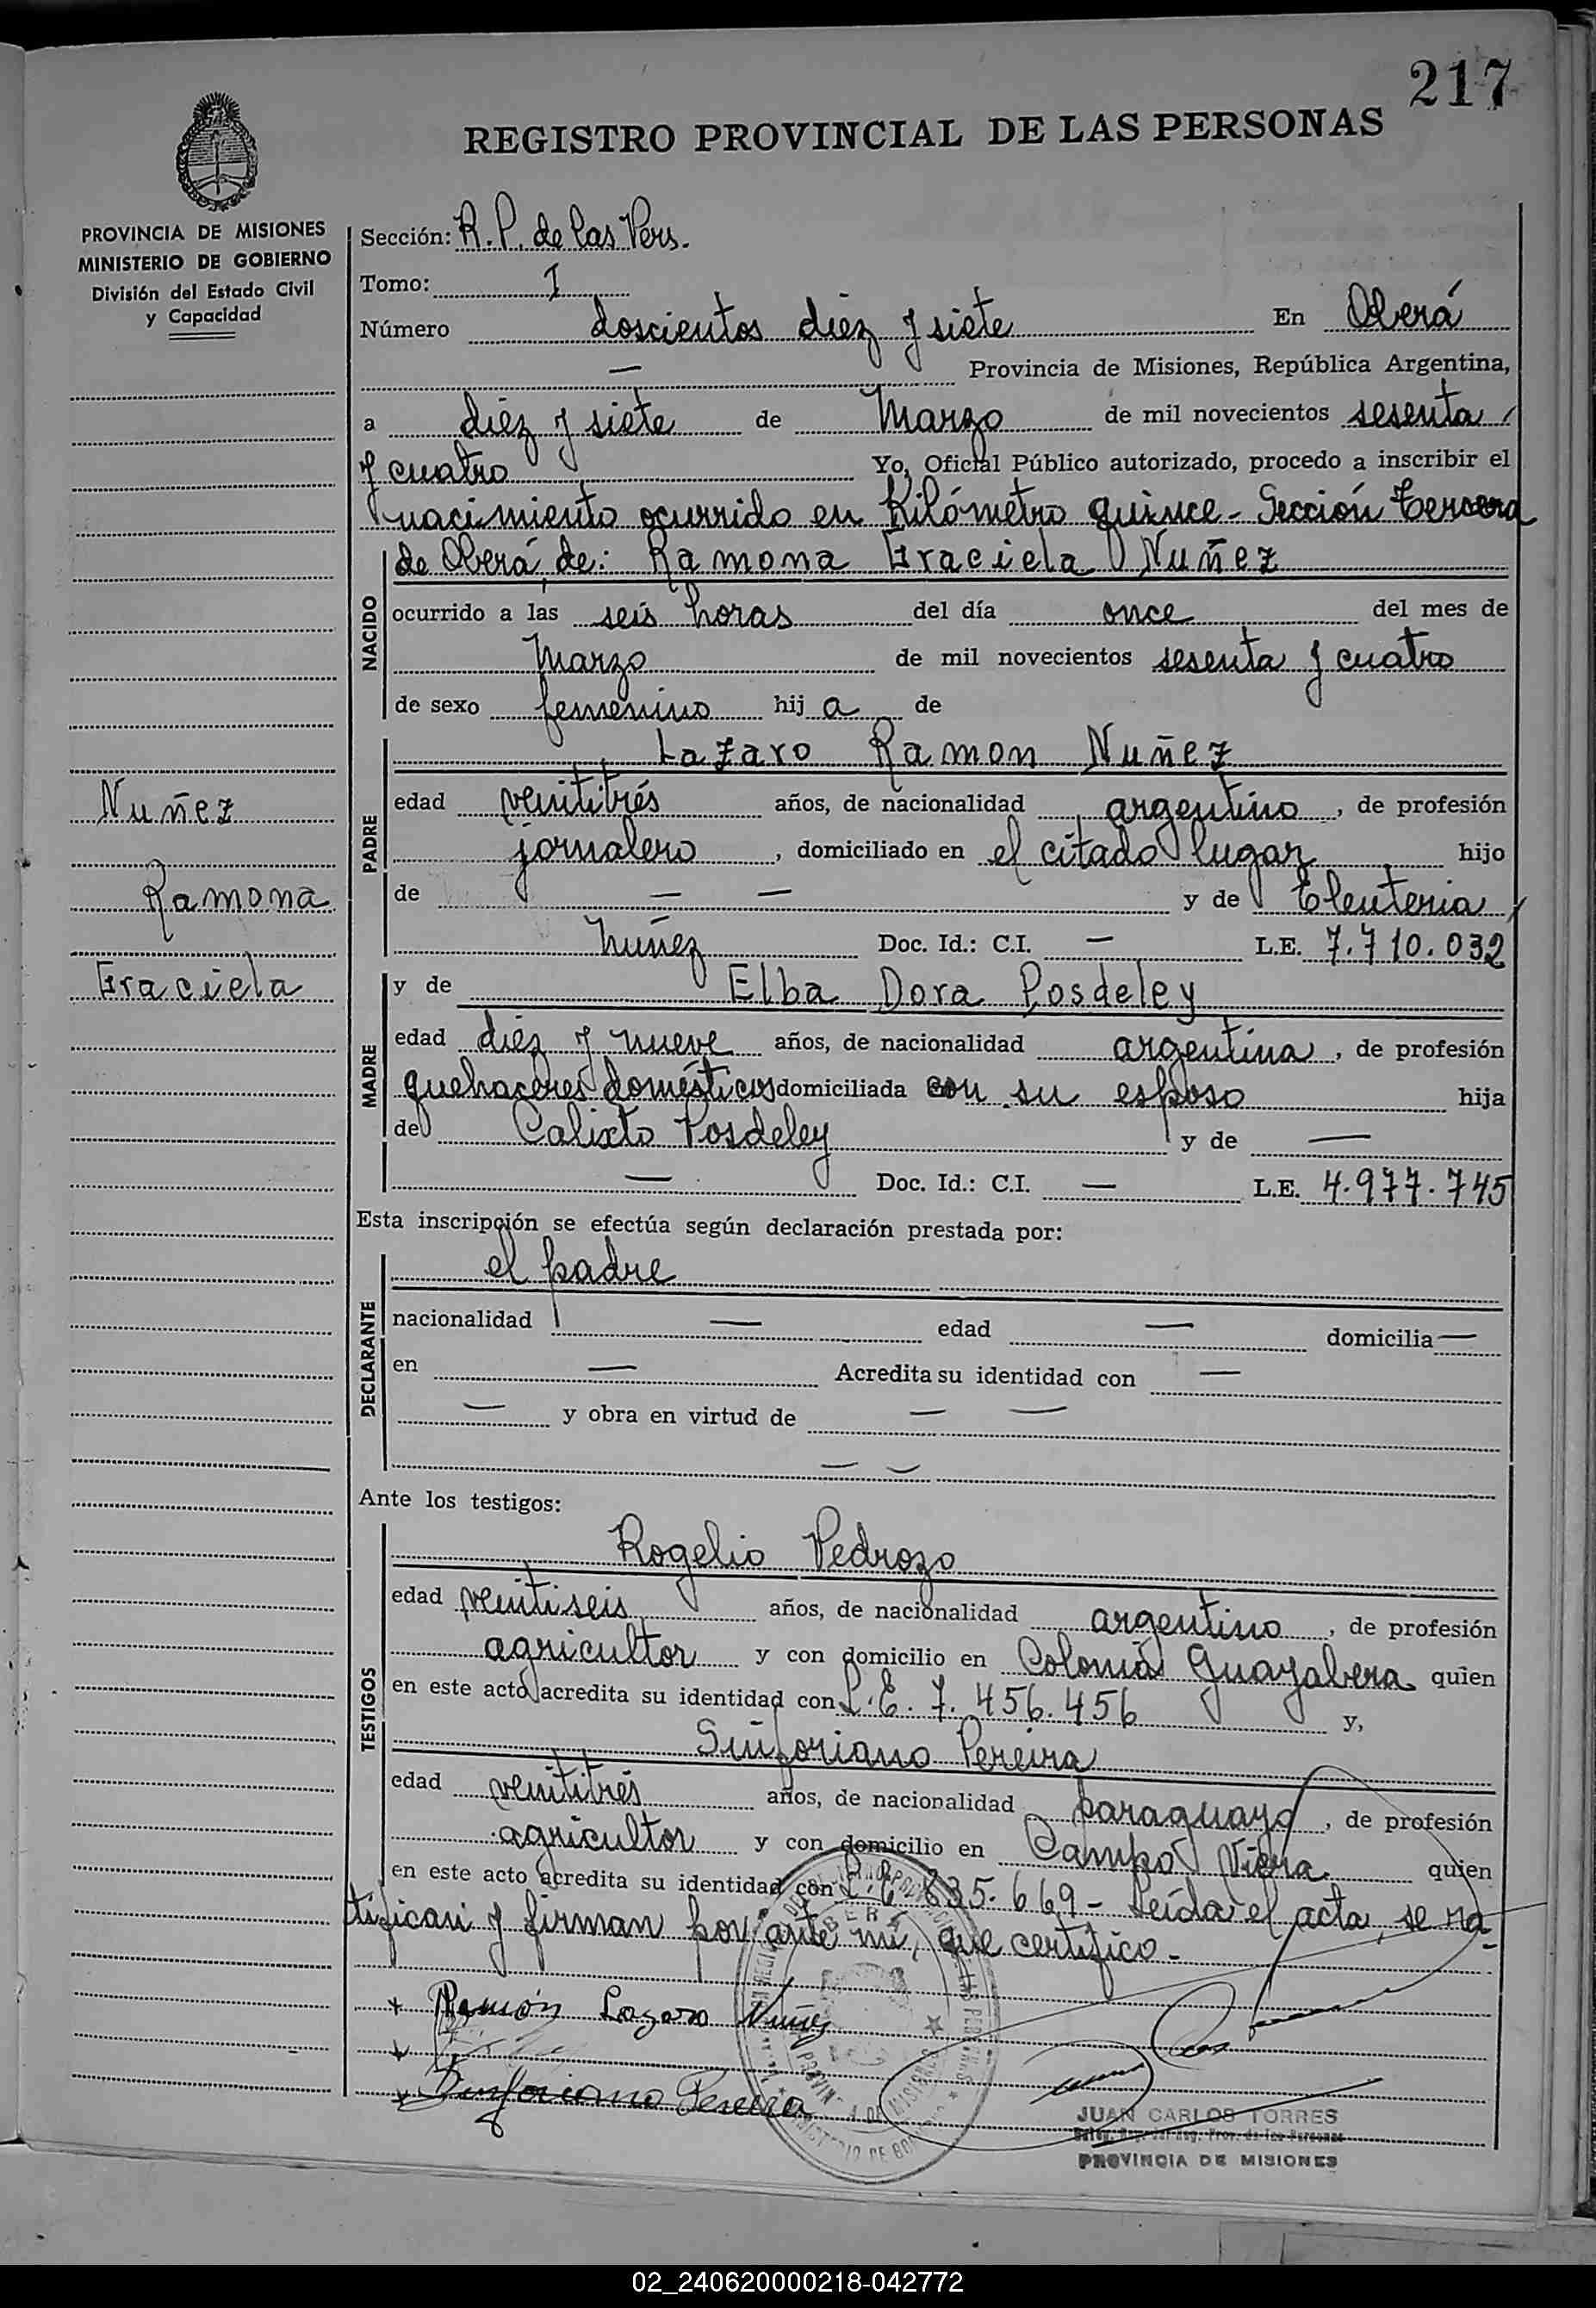 217
REGISTRO PROVINCIAL DE LAS PERSONAS
PROVINCIA DE MISIONES
MINISTERIO DE GOBIERNO
División del Estado Civil
y Capacidad
Sección: R. P. de las Pers.
Tomo: I
Número doscientos diez y siete En Oberá
— Provincia de Misiones, República Argentina,
a diez y siete de Marzo de mil novecientos sesenta
y cuatro Yo, Oficial Público autorizado, procedo a inscribir el
nacimiento ocurrido en Kilómetro quince - Sección Tercera
NACIDO
de Oberá, de: Ramona Graciela Nuñez
ocurrido a las seis horas del día once del mes de
Marzo de mil novecientos sesenta y cuatro
de sexo femenino hij a de
PADRE
Lazaro Ramon Nuñez
edad veintitrés años, de nacionalidad argentino, de profesión
jornalero, domiciliado en el citado lugar hijo
de — — y de Eleuteria
Nuñez Doc. Id.: C.I. — L.E. 7.710.032
Nuñez
Ramona
Graciela
MADRE
y de Elba Dora Posdeley
edad diez y nueve años, de nacionalidad argentina, de profesión
quehaceres domésticos domiciliada con su esposo hija
de Calixto Posdeley y de —
— Doc. Id.: C.I. — L.E. 4.977.745
Esta inscripción se efectúa según declaración prestada por:
DECLARANTE
el padre
nacionalidad — edad — domicilia —
en — Acredita su identidad con —
— y obra en virtud de — —
— —
Ante los testigos:
TESTIGOS
Rogelio Pedrozo
edad veintiseis años, de nacionalidad argentino, de profesión
agricultor y con domicilio en Colonia Guayabera quien
en este acto acredita su identidad con L.E. 7.456.456 y,
Sinforiano Pereira
edad veintitrés años, de nacionalidad paraguayo, de profesión
agricultor y con domicilio en Campo Viera quien
en este acto acredita su identidad con 835.669 - Leída el acta, se ra-
tifican y firman por ante mi, que certifico -
+ Ramón Lazaro Nuñez
Sinforiano Pereira
JUAN CARLOS TORRES
PROVINCIA DE MISIONES
02_240620000218-042772